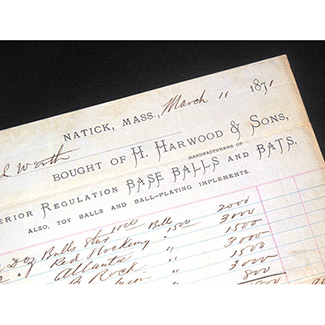 NATICK, MASS., March 11 1871
Worth
BOUGHT OF H. HARWOOD & SONS,
MANUFACTURERS OF
ERIOR REGULATION BASE BALLS AND BATS,
ALSO, TOY BALLS AND BALL-PLAYING IMPLEMENTS.
Doz Balls Star 1000 Balls 1500 2000
Red Stocking " 3000
Atlanta " 1500
Rock " 3000
" 1500
3000
800